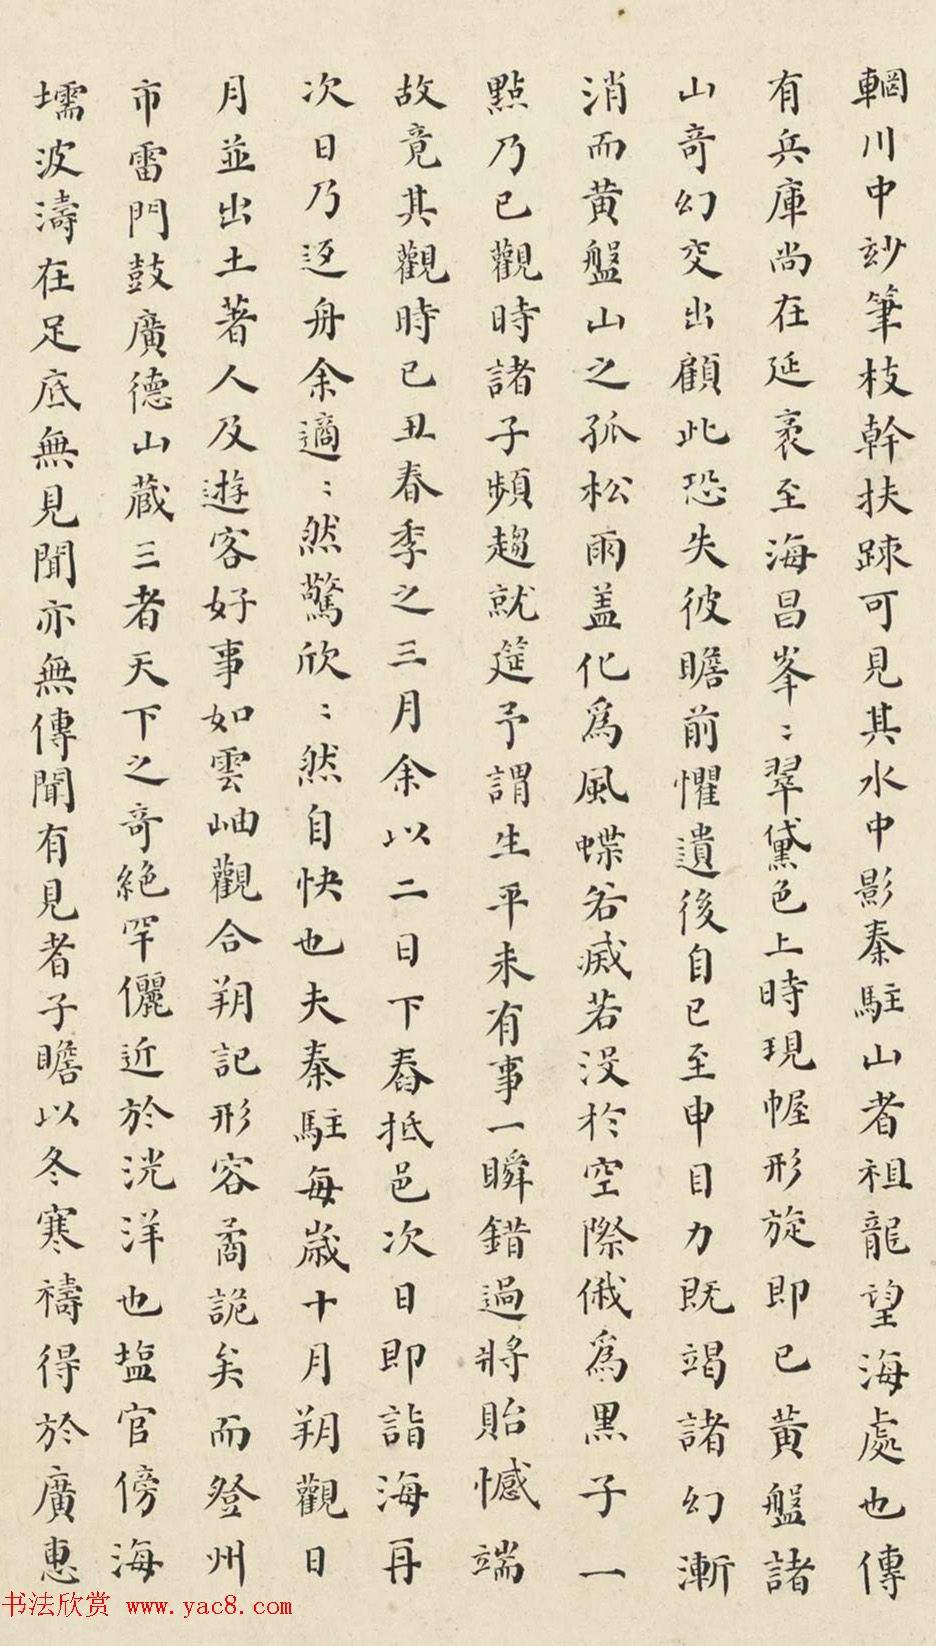 輞川中玅筆枝幹扶踈可見其水中影秦駐山者祖龍望海處也傳
有兵庫尚在延袤至海昌峯〻翠黛色上時現幄形旋即已黃盤諸
山奇幻交出顧此恐失彼瞻前懼遺後自巳至申目力既竭諸幻漸
消而黃盤山之孤松雨盖化爲風蝶若滅若没於空際俄爲黑子一
點乃已觀時諸子頻趨就筵予謂生平未有事一瞬錯過將貽憾端
故竟其觀時己丑春季之三月余以二日下舂抵邑次日即詣海再
次日乃返舟余適〻然驚欣〻然自快也夫秦駐每歲十月朔觀日
月並出土著人及遊客好事如雲岫觀合朔記形容矞詭矣而登州
市雷門鼓廣德山藏三者天下之奇絶罕儷近於洸洋也塩官傍海
壖波濤在足底無見聞亦無傳聞有見者子瞻以冬寒禱得於廣惠
书法欣赏 www.yac8.com